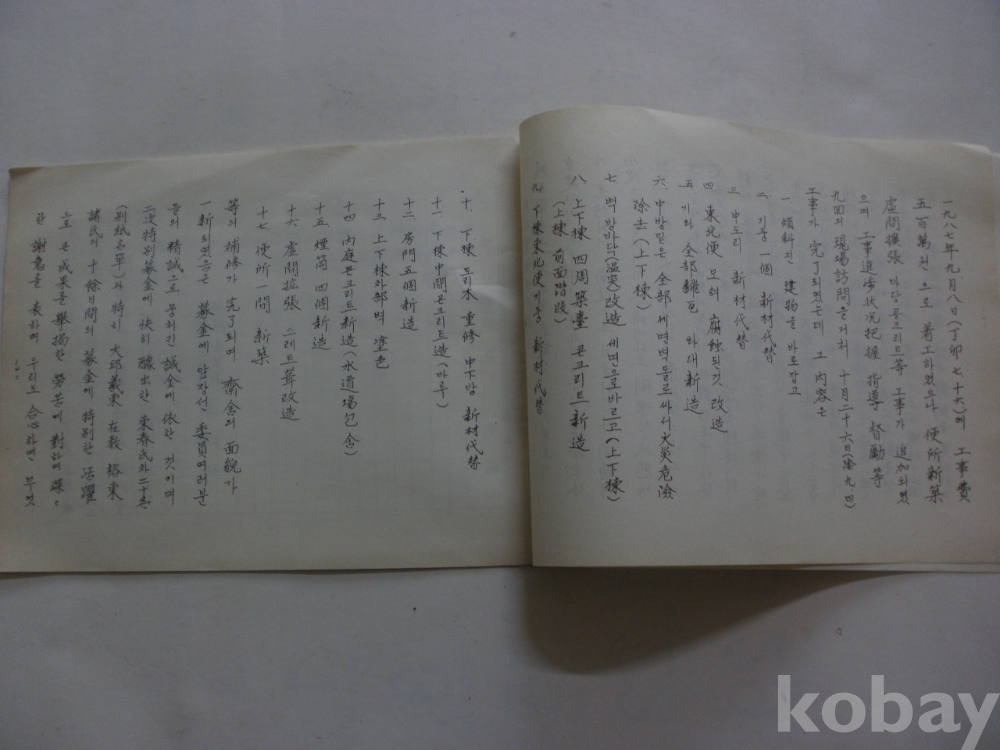 一九八七年九月八日(丁卯七十六)에 工事費
五百萬원으로 着工하였으나 便所新築
虛間擴張 마당콩크리트等 工事가 追加되였
으며 工事進涉狀況把握 指導 督勵等
九回의 現場訪問을거처 十月二十六日(陰九四)
工事가 完了되였는데 그 內容은
一 傾斜진 建物을 바로잡고
二 기둥 一個 新材代替
三 中도리 新材代替
四 東北便 모서 腐蝕된것 改造
五 기와 全部 와대新造
六 中方밑은 全部 세면벽돌로싸서 火災危險
除去(上下棟)
七 벽 방바닥(溫突)改造 세면으로바르고(上下棟)
八 上下棟 四周築臺 콘크리트新造
(上棟 前面階段)
九 下棟東北便기둥 新材代替
十 下棟 도리木 重修 中下方 新材代替
十一 下棟中間콘크리트造(마루)
十二 房門五個新造
十三 上下棟外部벽 塗色
十四 內庭콘크리트新造(水道場包含)
十五 煙筒 四個新造
十六 虛間擴張 스레트葺改造
十七 便所一間 新築
等의 補修가 完了되며 齋舍의 面貌가
一新되엿음은 募金에 앞장선 委員여러분
들의 精誠으로 뭉처진 誠金에 依한 것이며
二次特別募金에 快히 醵出한 宗春氏外二十名
(別紙名單)과 特히 大邱義東 在穀 榕東
諸氏의 十餘日間의 募金에 特別한 活躍
으로 큰 成果를擧揚한 勞苦에 對하며 深深
한 謝意를 表하며 우리도 合心하면 무엇